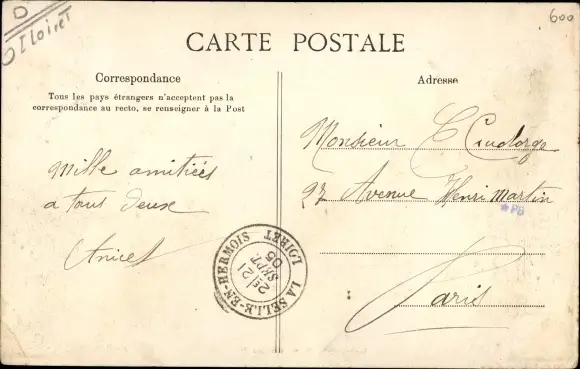 D
Loiret
600
CARTE POSTALE
Correspondance
Tous les pays étrangers n'acceptent pas la
correspondance au recto, se renseigner à la Post
Mille amitiées
a tous deux
Adresse
Monsieur
Avenue Henri Martin
PB
Paris
LA SELLE-EN-HERMOIS
LOIRET
2E
21
SEPT
05